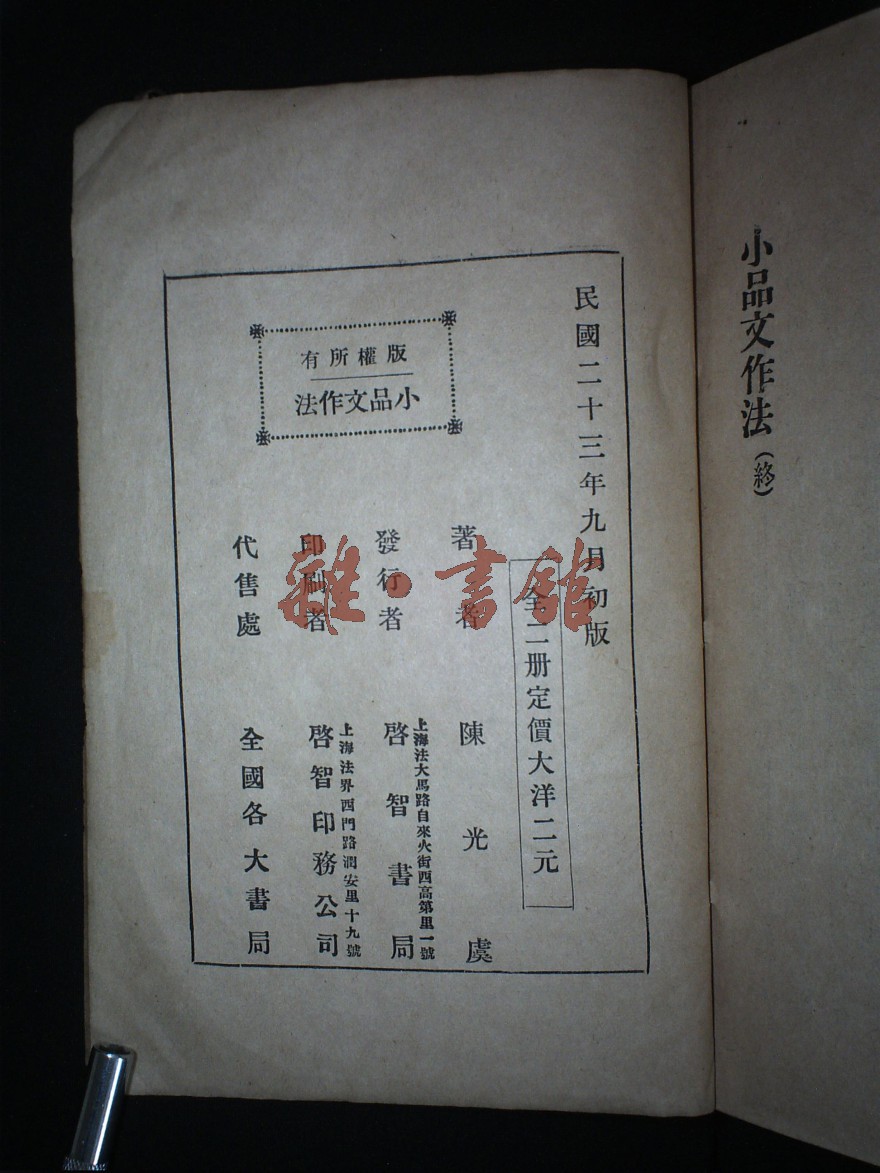 小品文作法(終)
民國二十三年九月初版
全二册定價大洋二元
著者 陳光虞
發行者 上海法大馬路自來火街西高第里一號 啓智書局
印刷者 上海法界西門路潤安里十九號 啓智印務公司
代售處 全國各大書局
版權所有
小品文作法
雜·書館